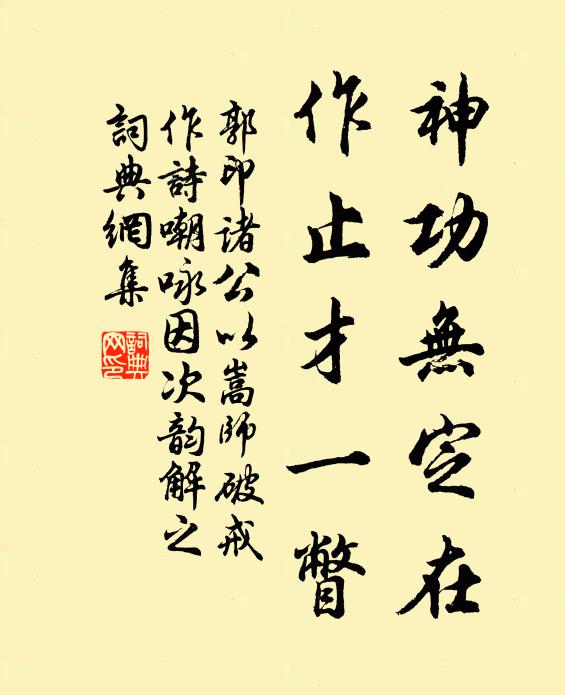 神功無定在
作止才一瞥
郭印諸公以嵩師破戒
作詩嘲咏因次韵解之
詞典網集
詞典
网印